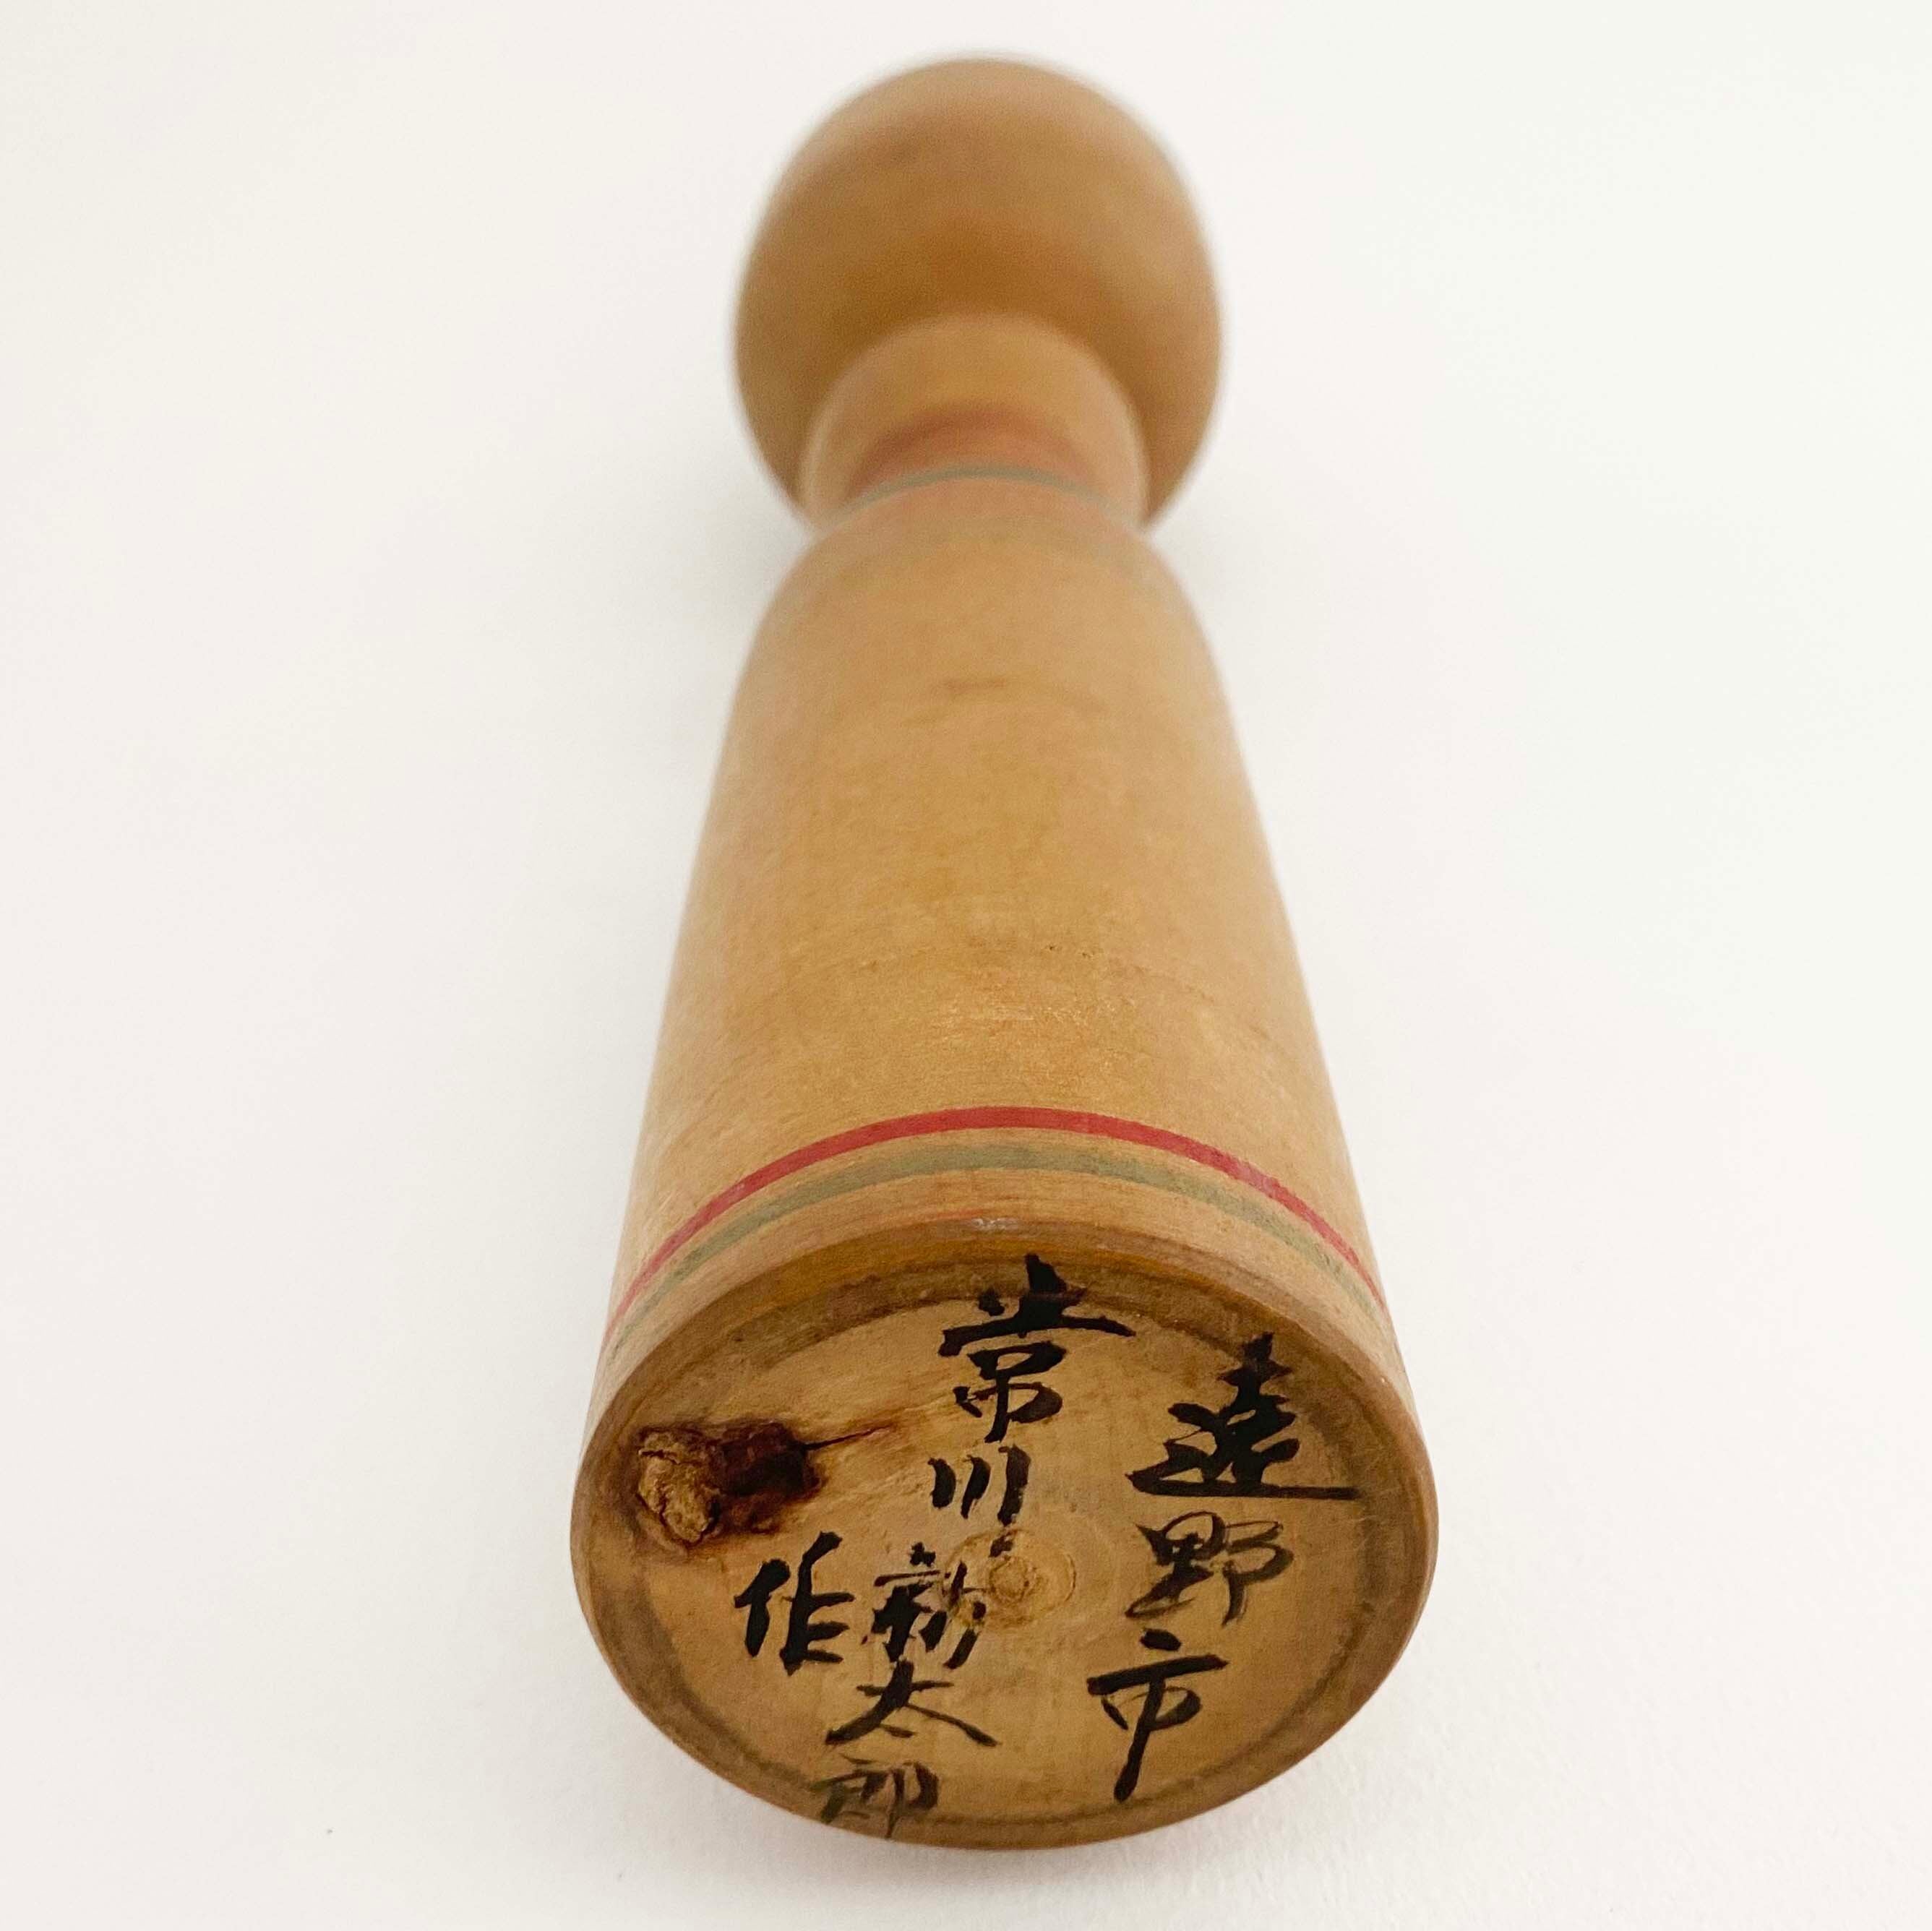 遠野市
常川新太郎
作